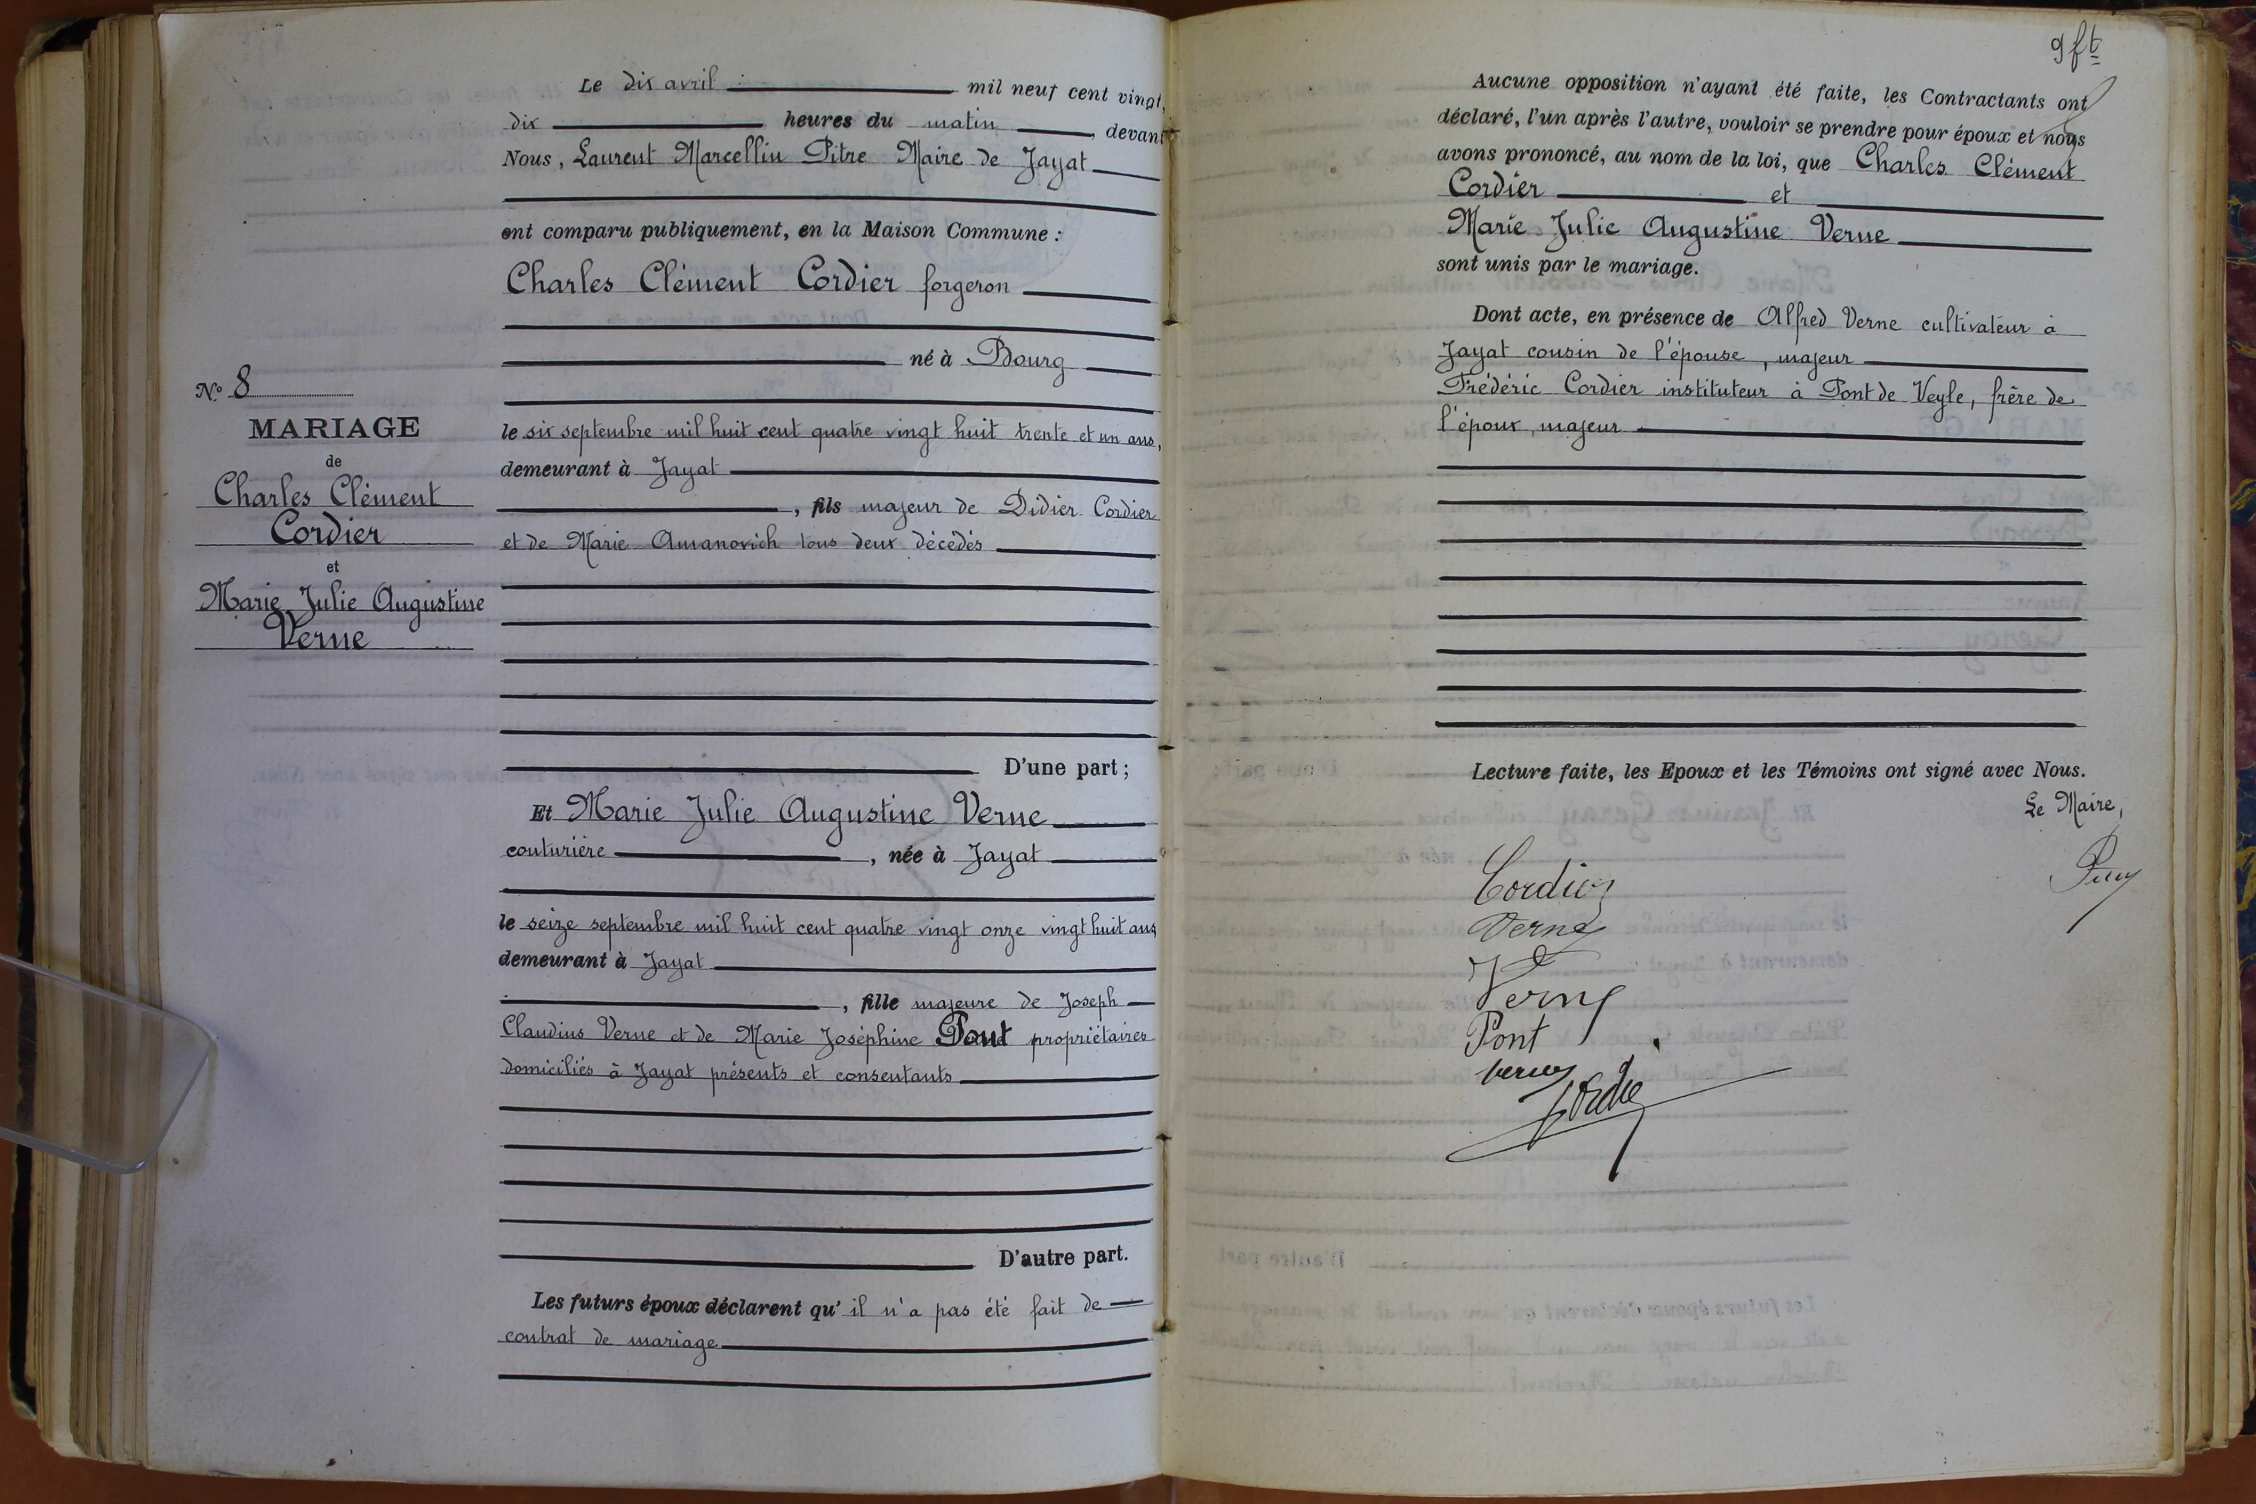 Le dix avril mil neuf cent vingt,
dix heures du matin, devant
Nous, Laurent Marcellin Pitre Maire de Jayat
ont comparu publiquement, en la Maison Commune :
Charles Clément Cordier forgeron
né à Bourg
le six septembre mil huit cent quatre vingt huit trente et un ans,
demeurant à Jayat
, fils majeur de Didier Cordier
et de Marie Amanovich tous deux décédés
D'une part ;
Et Marie Julie Augustine Verne
couturière, née à Jayat
le seize septembre mil huit cent quatre vingt onze vingt huit ans
demeurant à Jayat
, fille majeure de Joseph
Claudius Verne et de Marie Joséphine Pont propriétaires
domiciliés à Jayat présents et consentants
D'autre part.
Les futurs époux déclarent qu'il n'a pas été fait de
contrat de mariage
N° 8
MARIAGE
de
Charles Clément
Cordier
et
Marie Julie Augustine
Verne
9 ft
Aucune opposition n'ayant été faite, les Contractants ont
déclaré, l'un après l'autre, vouloir se prendre pour époux et nous
avons prononcé, au nom de la loi, que Charles Clément
Cordier et
Marie Julie Augustine Verne
sont unis par le mariage.
Dont acte, en présence de Alfred Verne cultivateur à
Jayat cousin de l'épouse, majeur
Frédéric Cordier instituteur à Pont de Veyle, frère de
l'époux, majeur
Lecture faite, les Epoux et les Témoins ont signé avec Nous.
Le Maire,
Cordier
Verne
Verne
Pont
Verne
Cordier